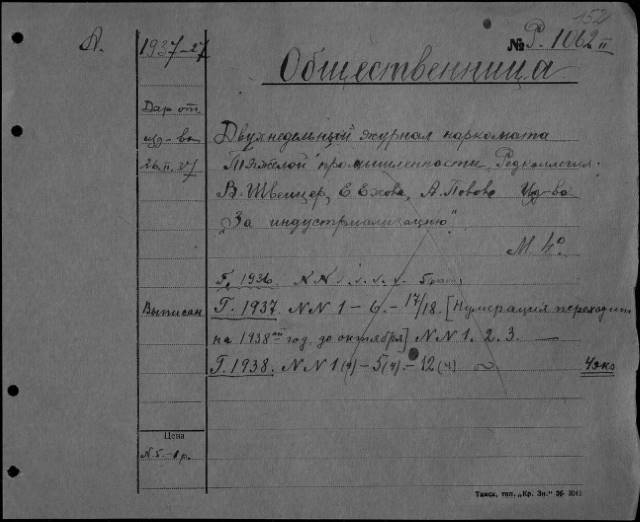 152
А. 1937-27 № Р. 1062 II
Общественница
Дар от
изд-ва Двухнедельный журнал наркомата
26.II.37 Тяжелой промышленности. Редколлегия:
В. Швейцер, Е. Ехова, А. Попова Изд-во
„За индустриализацию".
М. 4º
Г. 1936
Выписан Г. 1937. NN 1-6.-17/18. [Нумерация переходит
на 1938 ой год. до октября] NN 1. 2. 3. —
Г. 1938. NN 1(4)-5(4).-12(4) 4 экз
Цена
N.5.-1 р.
Тамск. тип. „Кр. Зн." 36